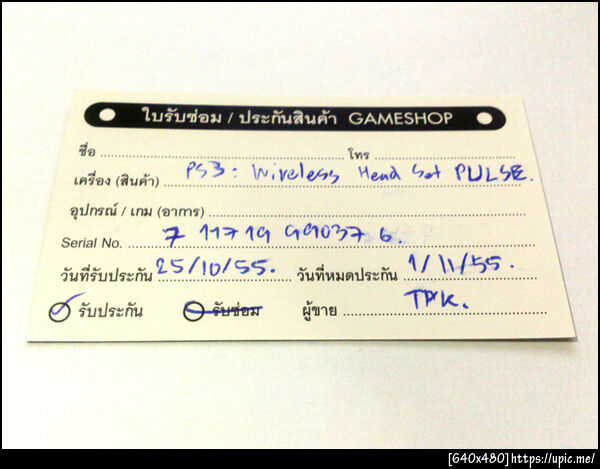 ใบรับซ่อม / ประกันสินค้า GAMESHOP
ชื่อ ................ โทร ................
เครื่อง (สินค้า) PS3 : Wireless Head Set PULSE.
อุปกรณ์ / เกม (อาการ) ................
Serial No. 7 11719 99037 6.
วันที่รับประกัน 25/10/55. วันที่หมดประกัน 1/11/55.
รับประกัน รับซ่อม ผู้ขาย TPK.
[640x480]https://upic.me/